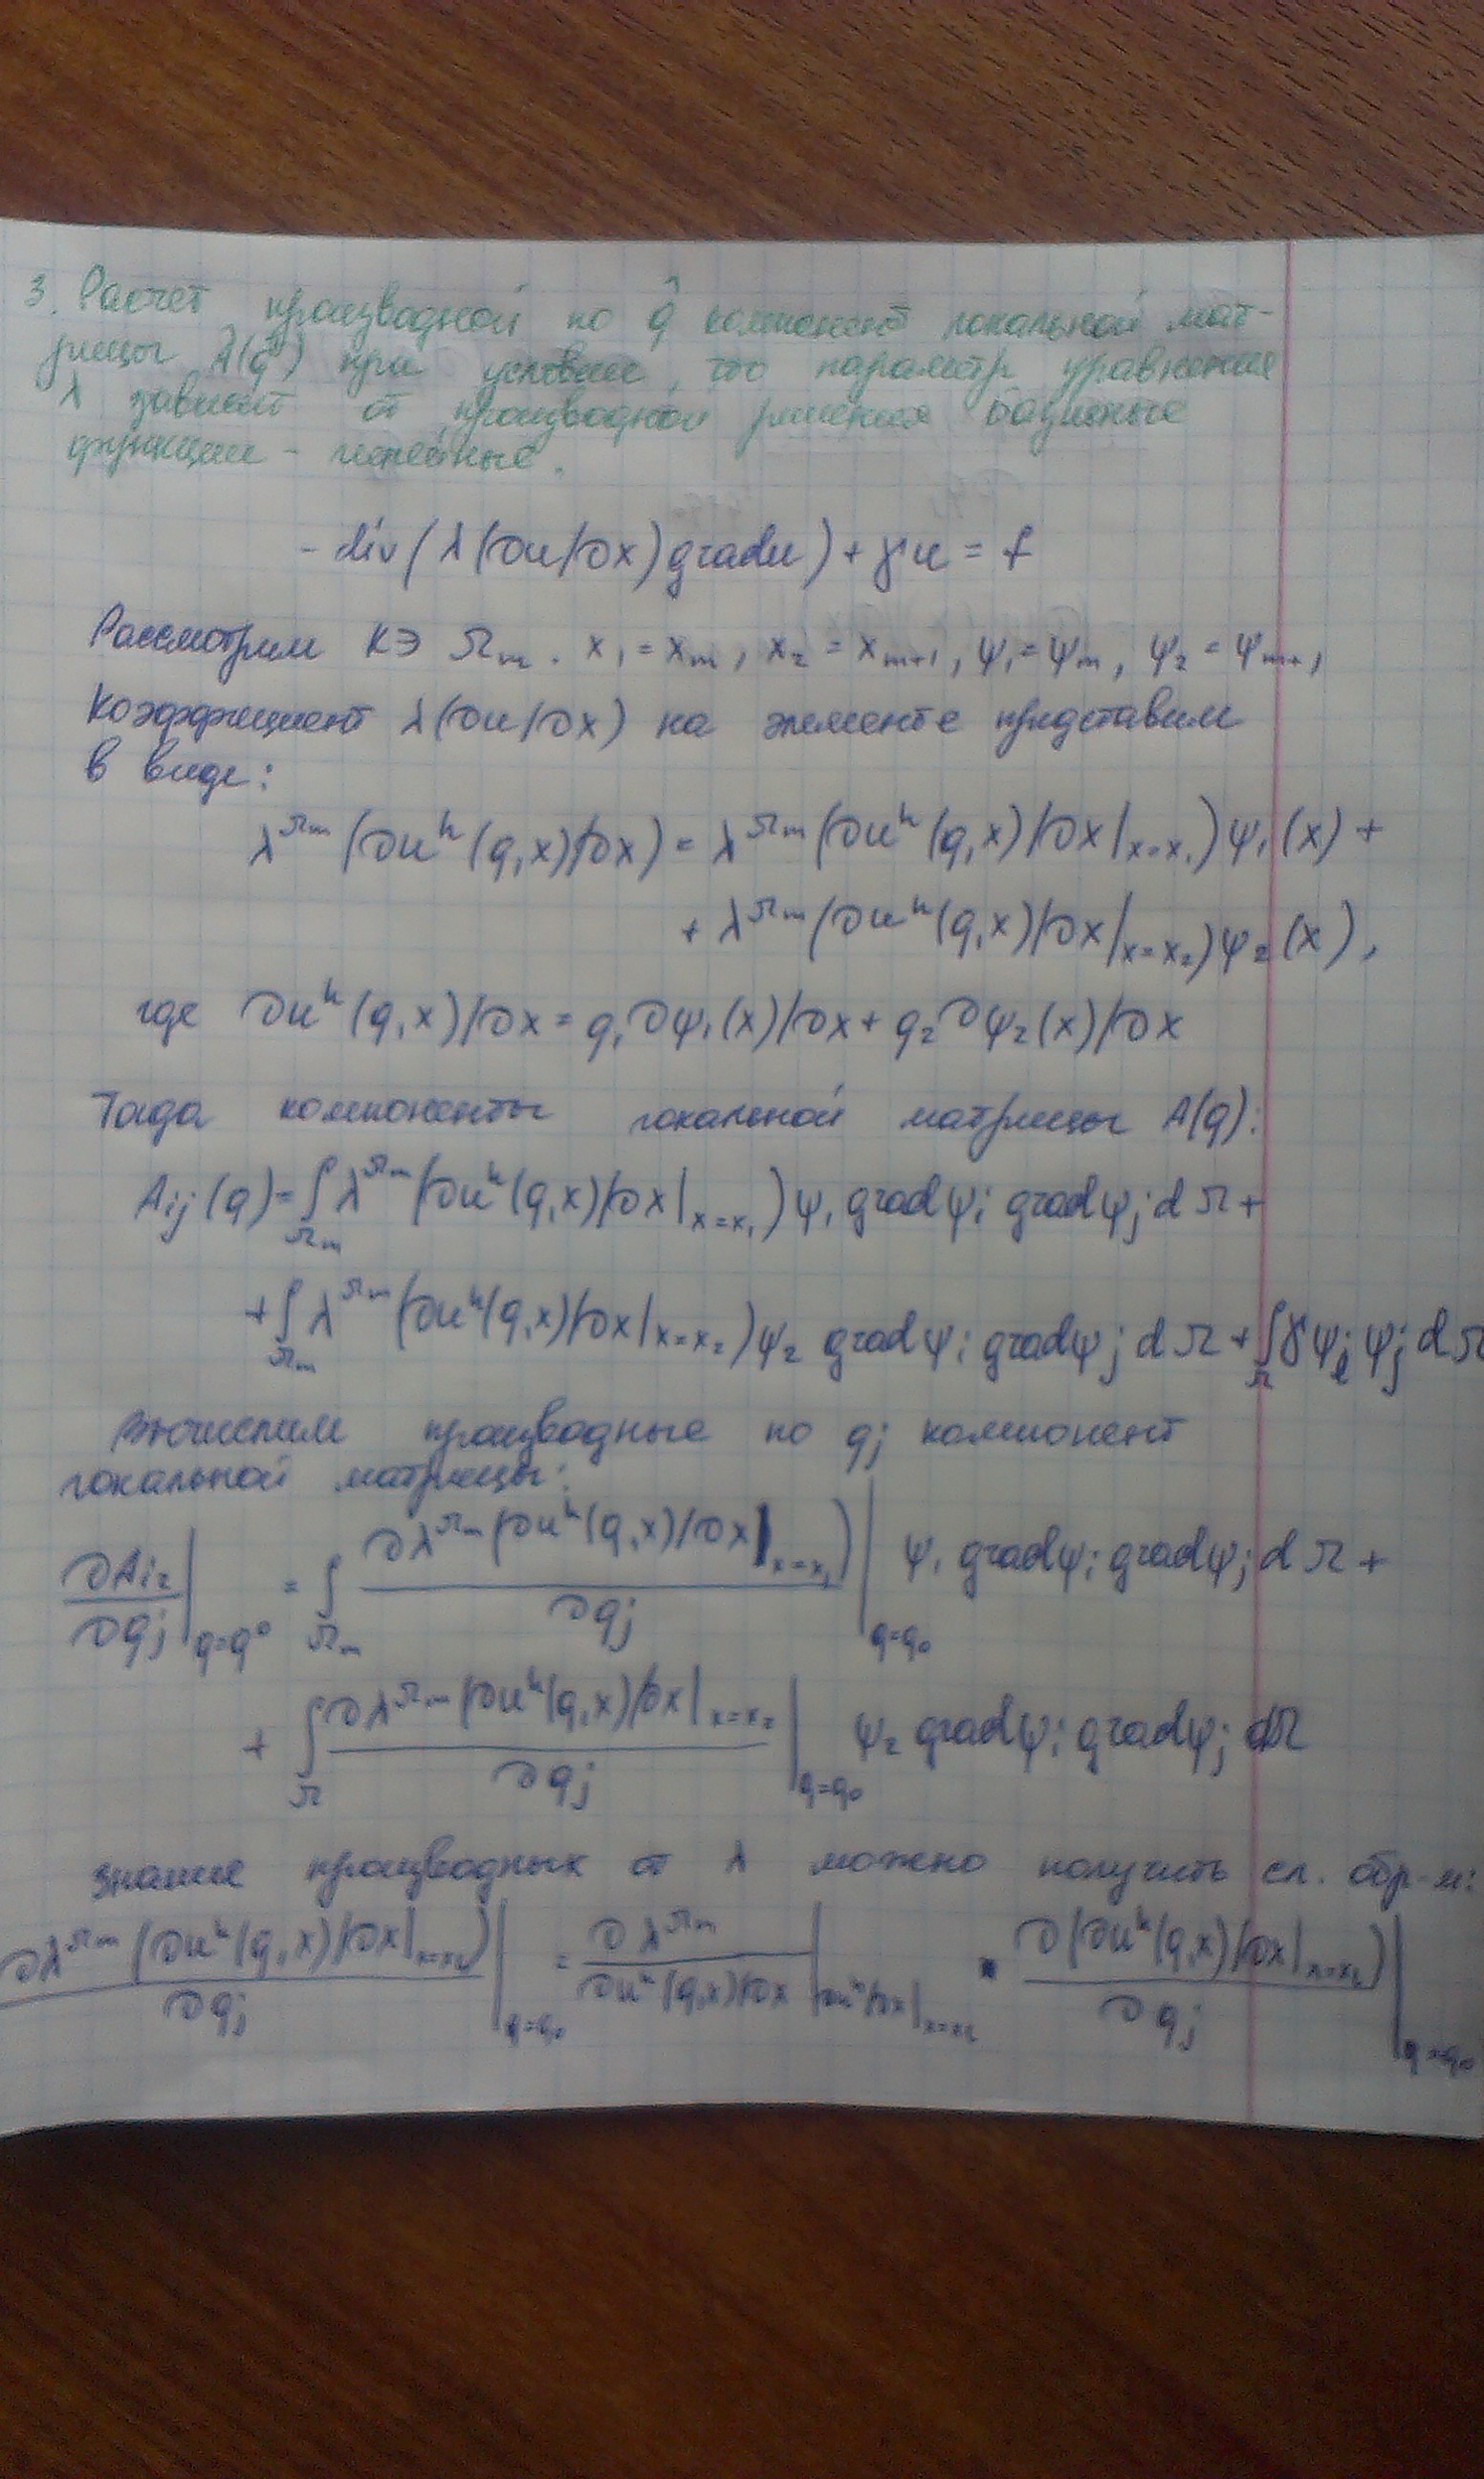 3. Расчет производной по q̂ компонент локальной мат-
рицы A(q⁰) при условии, что параметр уравнения
λ зависит от производной решения базисные
функции - линейные.
- div(λ(∂u/∂x)gradu) + γu = f
Рассмотрим КЭ Ωₘ. x₁ = xₘ, x₂ = xₘ₊₁, ψ₁ = ψₘ, ψ₂ = ψₘ₊₁
Коэффициент λ(∂u/∂x) на элементе представим
в виде:
λ^Ωₘ(∂uʰ(q,x)/∂x) = λ^Ωₘ(∂uʰ(q,x)/∂x|ₓ₌ₓ₁)ψ₁(x) +
+ λ^Ωₘ(∂uʰ(q,x)/∂x|ₓ₌ₓ₂)ψ₂(x),
где ∂uʰ(q,x)/∂x = q₁∂ψ₁(x)/∂x + q₂∂ψ₂(x)/∂x
Тогда компоненты локальной матрицы A(q):
Aᵢⱼ(q) = ∫_Ωₘ λ^Ωₘ(∂uʰ(q,x)/∂x|ₓ₌ₓ₁)ψ₁ gradψᵢ gradψⱼ dΩ +
+ ∫_Ωₘ λ^Ωₘ(∂uʰ(q,x)/∂x|ₓ₌ₓ₂)ψ₂ gradψᵢ gradψⱼ dΩ + ∫_Ω γψᵢψⱼ dΩ
Вычислим производные по qⱼ компонент
локальной матрицы:
∂Aᵢ₂/∂qⱼ |q=q⁰ = ∫_Ωₘ ∂λ^Ωₘ(∂uʰ(q,x)/∂x|ₓ₌ₓ₁)/∂qⱼ |q=q₀ ψ₁ gradψᵢ gradψⱼ dΩ +
+ ∫_Ω ∂λ^Ωₘ(∂uʰ(q,x)/∂x|ₓ₌ₓ₂/∂qⱼ |q=q₀ ψ₂ gradψᵢ gradψⱼ dΩ
производных от λ можно получить сл. обр-м:
∂λ^Ωₘ(∂uʰ(q,x)/∂x|ₓ₌ₓ₂)/∂qⱼ |q=q₀ = ∂λ^Ωₘ/∂uʰ(q,x)/∂x |∂uʰ/∂x|ₓ₌ₓ₂ · ∂(∂uʰ(q,x)/∂x|ₓ₌ₓ₂)/∂qⱼ |q=q₀